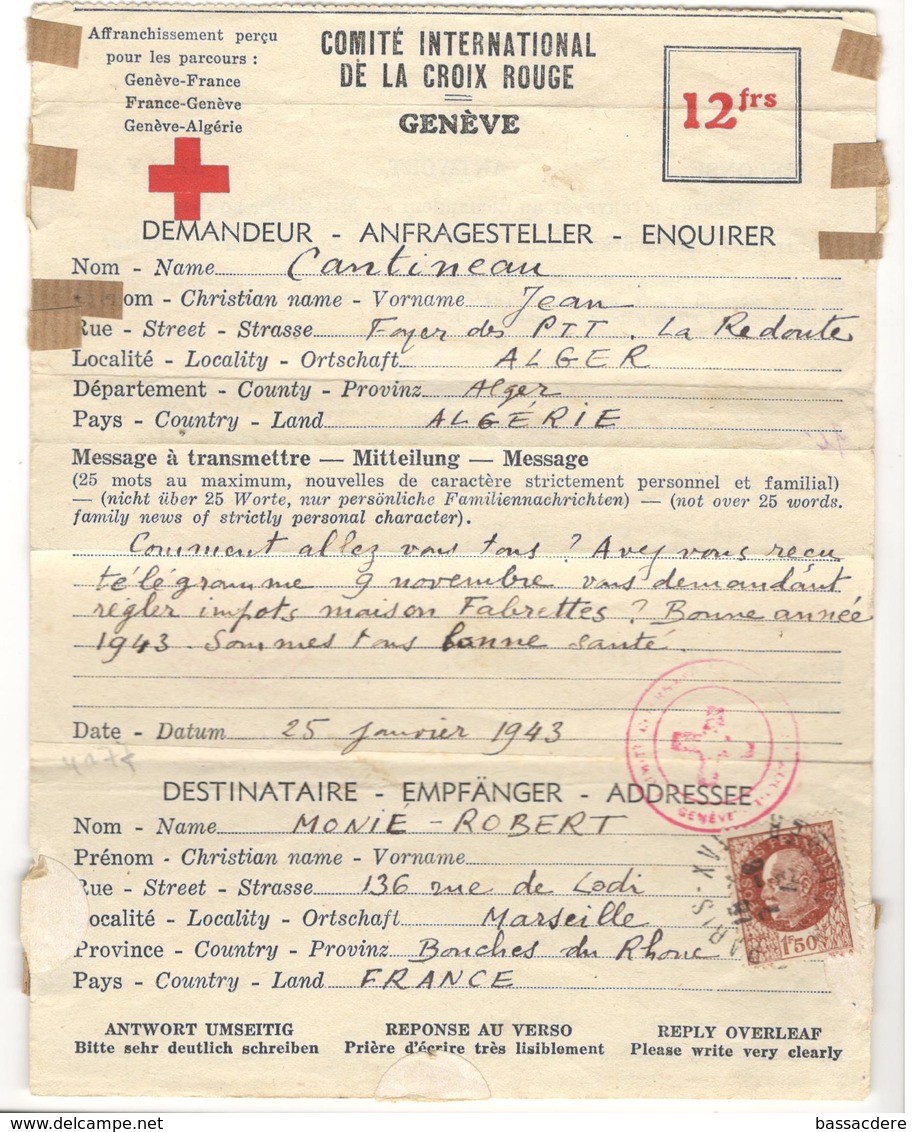 Affranchissement perçu
pour les parcours :
Genève-France
France-Genève
Genève-Algérie
COMITÉ INTERNATIONAL
DE LA CROIX ROUGE
GENÈVE
12frs
DEMANDEUR - ANFRAGESTELLER - ENQUIRER
Nom - Name Cantineau
nom - Christian name - Vorname Jean
Rue - Street - Strasse Foyer des PTT. La Redoute
Localité - Locality - Ortschaft ALGER
Département - County - Provinz Alger
Pays - Country - Land ALGÉRIE
Message à transmettre — Mitteilung — Message
(25 mots au maximum, nouvelles de caractère strictement personnel et familial)
— (nicht über 25 Worte, nur persönliche Familiennachrichten) — (not over 25 words.
family news of strictly personal character).
Comment allez vous tous ? Avez vous reçu
télégramme 9 novembre vous demandant
régler impots maison Fabrettes ? Bonne année
1943. Sommes tous bonne santé.
Date - Datum 25 janvier 1943
GENÈVE
DESTINATAIRE - EMPFÄNGER - ADDRESSEE
Nom - Name MONIÉ-ROBERT
Prénom - Christian name - Vorname
Rue - Street - Strasse 136 rue de Lodi
Localité - Locality - Ortschaft Marseille
Province - Country - Provinz Bouches du Rhone
Pays - Country - Land FRANCE
PARIS-XVI
1F50
ANTWORT UMSEITIG
Bitte sehr deutlich schreiben
REPONSE AU VERSO
Prière d'écrire très lisiblement
REPLY OVERLEAF
Please write very clearly
bassacdere